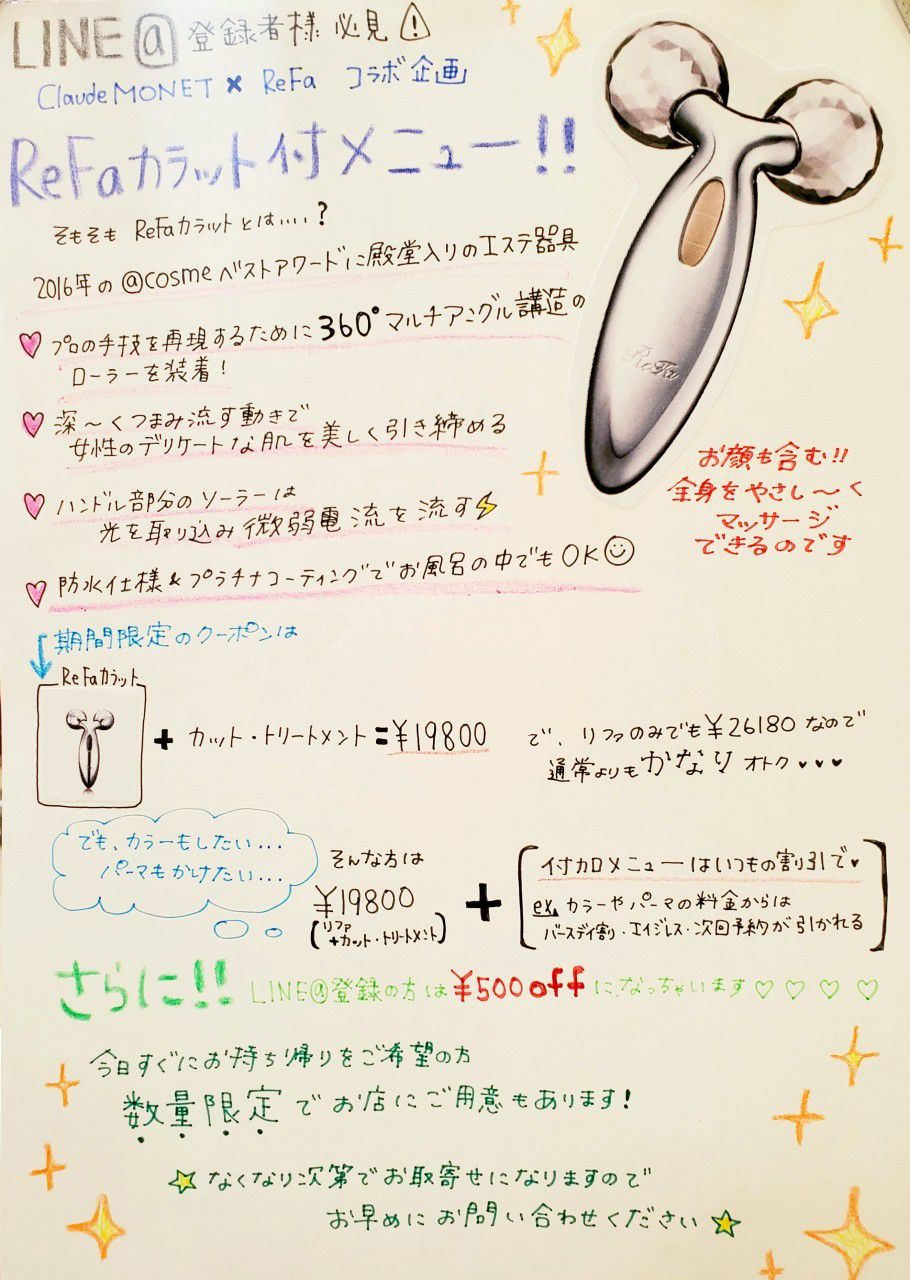 LINE@登録者様必見⚠
Claude MONET × ReFa コラボ企画
ReFaカラット付メニュー!!
そもそも ReFaカラットとは....?
2016年の@cosmeベストアワードに殿堂入りのエステ器具
♥ プロの手技を再現するために360°マルチアングル講造の
ローラーを装着!
♥ 深〜くつまみ流す動きで
女性のデリケートな肌を美しく引き締める
♥ ハンドル部分のソーラーは
光を取り込み微弱電流を流す⚡
♥ 防水仕様&プラチナコーティングでお風呂の中でもOK☺
ReFa
お顔も含む!!
全身をやさし〜く
マッサージ
できるのです
↓期間限定のクーポンは
ReFaカラット
+ カット・トリートメント=¥19800
で、リファのみでも¥26180なので
通常よりもかなりオトク♥♥♥
でも、カラーもしたい...
パーマもかけたい...
そんな方は
¥19800
(リファ
+カット・トリートメント)
+
付加メニューはいつもの割り引で♥
ex, カラーやパーマの料金からは
バースデイ割り・エイジレス・次回予約が引かれる
さらに!! LINE@登録の方は¥500offに、なっちゃいます♡♡♡♡
今日すぐにお持ち帰りをご希望の方
数量限定でお店にご用意もあります!
☆なくなり次第でお取寄せになりますので
お早めにお問い合わせください☆